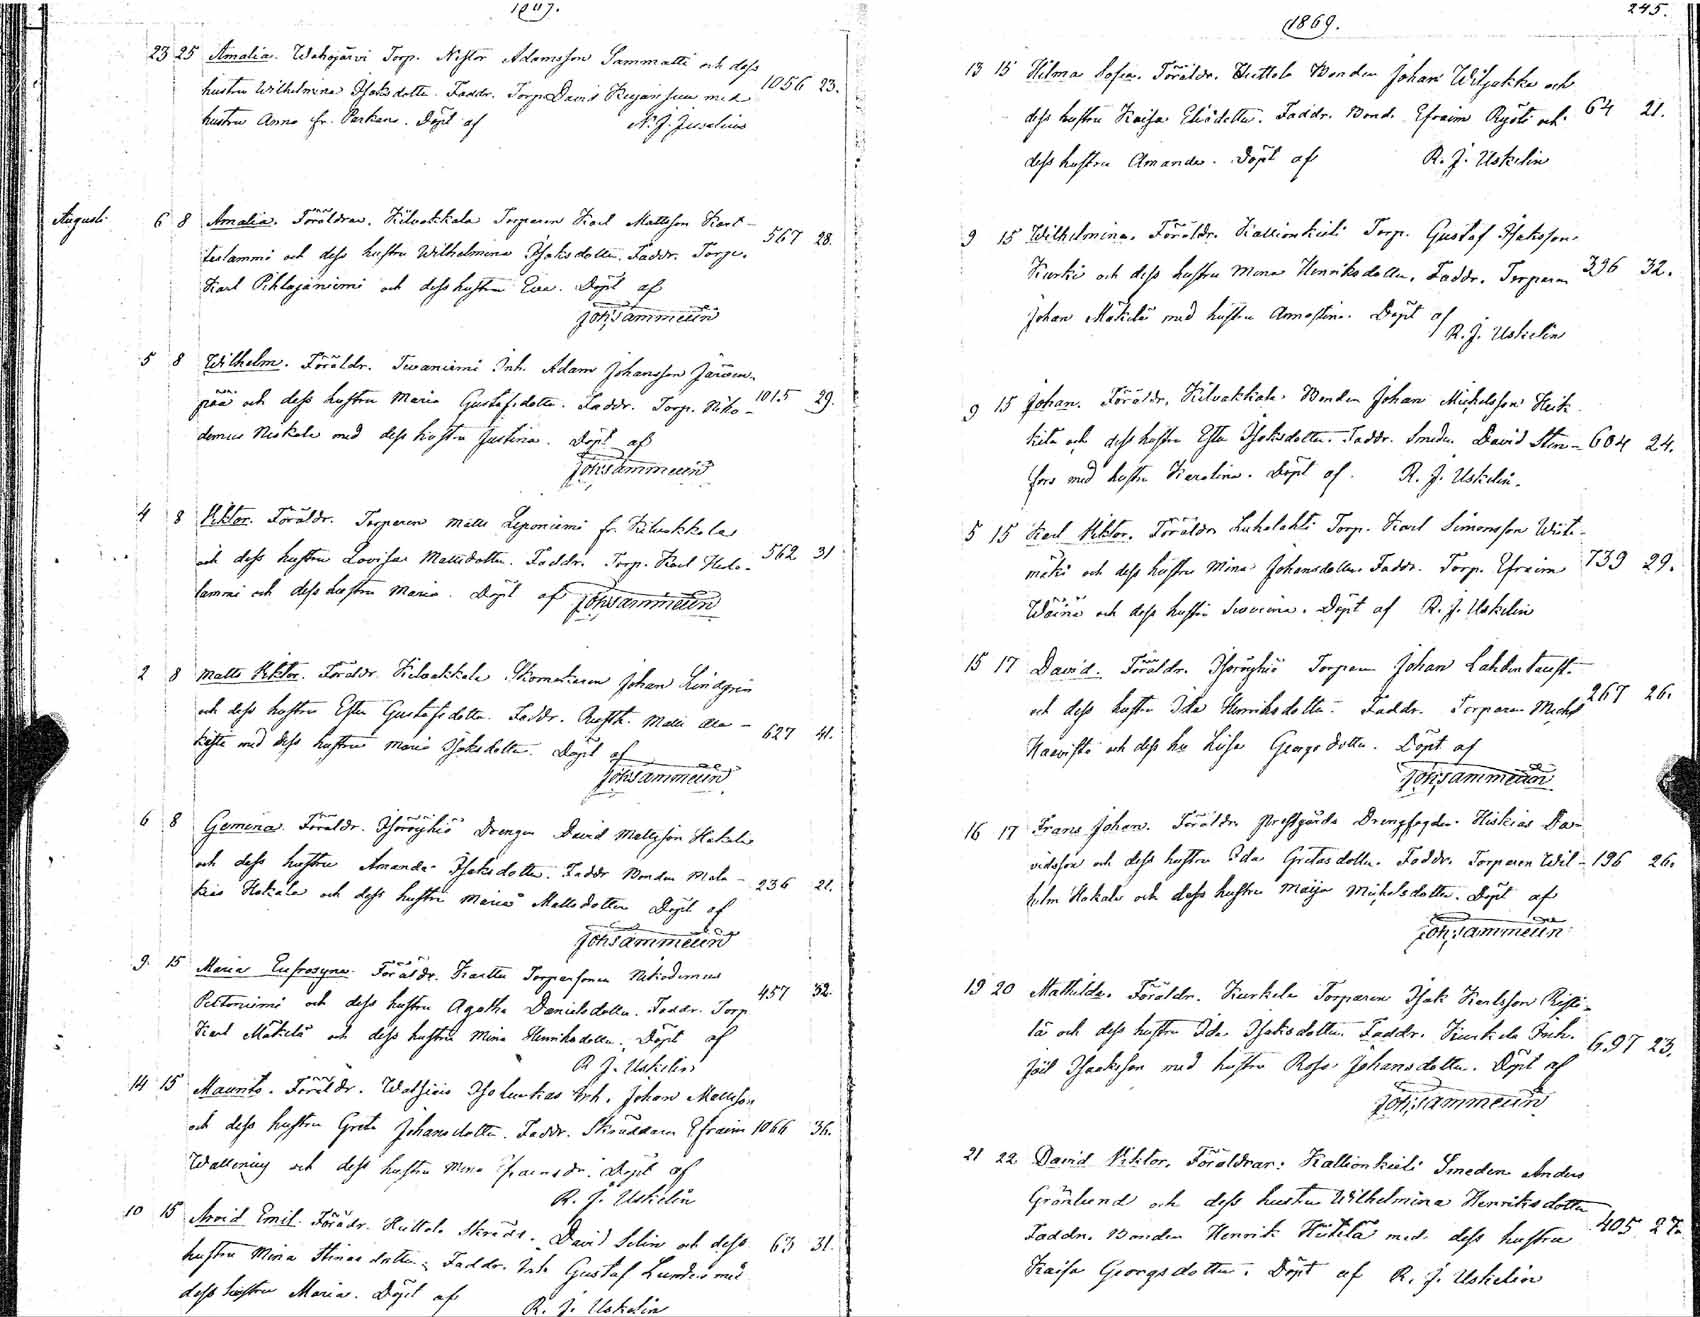 1869.
23 25 Amalia. Wahojärvi Torp. Nestor Adamsson Sammatti och dess
hustru Wilhelmina Isaksdotter. Faddr. Torp. David Kujansuu med 1056 23.
hustru Anna fr. Parkano. Döpt af N. J. Juselius
Augusti 6 8 Amalia. Föräldrar. Kilvakkala Torparen Karl Mattsson Kart-
teslammi och dess hustru Wilhelmina Isaksdotter. Faddr. Torp. 567 28.
Karl Pihlajaniemi och dess hustru Eva. Döpt af
Joh. Sammelin
5 8 Wilhelm. Föräldr. Tevaniemi Inh. Adam Johansson Järven-
pää och dess hustru Maria Gustafsdotter. Faddr. Torp. Niko- 1015 29.
demus Niskala med dess hustru Justina. Döpt af
Joh. Sammelin
4 8 Viktor. Föräldr. Torparen Matts Leponiemi fr. Kilvakkala
och dess hustru Lovisa Mattsdotter. Faddr. Torp. Karl 562 31
lammi och dess hustru Maria. Döpt af Joh. Sammelin
2 8 Matts Viktor. Föräldr. Kilvakkala Skomakaren Johan Lindgren
och dess hustru Ester Gustafsdotter. Faddr. Rusth. Matts Ala- 627 41.
med dess hustru Maria Isaksdotter. Döpt af
Joh. Sammelin
6 8 Gemina. Föräldr. Isoröyhiö Drengen David Mattsson Hakala
och dess hustru Amanda Isaksdotter. Faddr Bonden Mala- 236 21.
kias Hakala och dess hustru Maria Mattsdotter Döpt af
Joh. Sammelin
9. 15 Maria Eufrosyne. Föräldr. Kartta Torparsonen Nikodemus
Peltoniemi och dess hustru Agatha Danielsdotter. Faddr. Torp 457 32.
Karl Mäkelä och dess hustru Mina Henriksdotter. Döpt af
R. J. Uskelin
14 15 Maurits. Föräldr. Watsiois Inh. Johan Mattsson
och dess hustru Greta Johansdotter. Faddr. Skräddaren Efraim 1066 36.
Wallenius och dess hustru Mina Döpt af
R. J. Uskelin
10 15 Arvid Emil. Föräldr. Huttola Skrädd. David Selin och dess 63 31.
hustru Mina Stinasdotter. Faddr. Inh Gustaf Lunden med
dess hustru Maria. Döpt af R. J. Uskelin
245.
1869.
13 15 Hilma Sofia. Föräldr. Huttola Bonden Johan Wiljakka och
dess hustru Kaisa Eliædotter. Faddr. Bond. Efraim Rÿöti och 64 21.
dess hustru Amanda. Döpt af R. J. Uskelin
9 15 Wilhelmina. Föräldr. Kallionkieli Torp. Gustaf Isaksson
Kurki och dess hustru Mina Henriksdotter. Faddr. Torparen 396 32.
Johan Mäkelä med hustru Annastina. Döpt af
R. J. Uskelin
9 15 Johan. Föräldr. Kilvakkala Bonden Johan Michelsson Heik-
kilä och dess hustru Ester Isaksdotter. Faddr. Smeden David Sten- 604 24.
fors med hustru Karolina. Döpt af R. J. Uskelin.
5 15 Karl Viktor. Föräldr. Luhalahti Torp. Karl Simonsson Wiita-
mäki och dess hustru Mina Johansdotter. Faddr. Torp. Efraim 739 29.
Wäinä och dess hustru Severina. Döpt af R. J. Uskelin
15 17 David. Föräldr. Isoröyhiö Torparen Johan Lahdentaust
och dess hustru Ida Henriksdotter. Faddr. Torparen Michel 267 26.
Haavisto och dess hu Lisa Georgsdotter. Döpt af
Joh. Sammelin
16 17 Frans Johan. Föräldr. Prestgårds Drengfogden Hiskias Da-
vidsson och dess hustru Ida Gretasdotter. Faddr. Torparen Wil- 196 26.
helm Hakala och dess hustru Maija Michelsdotter. Döpt af
Joh. Sammelin
19 20 Mathilda. Föräldr. Kurkela Torparen Isak Karlsson Risti-
lä och dess hustru Ida Isaksdotter. Faddr. Kurkela Inh. 697 23.
Joel Isaaksson med hustru Rosa Johansdotter. Döpt af
Joh. Sammelin
21 22 David Viktor. Föräldrar: Kallionkieli Smeden Anders
Grönlund och dess hustru Wilhelmina Henriksdotter
Faddr. Bonden Henrik Hietela med dess hustru 405 27.
Kaisa Georgsdotter. Döpt af R. J. Uskelin